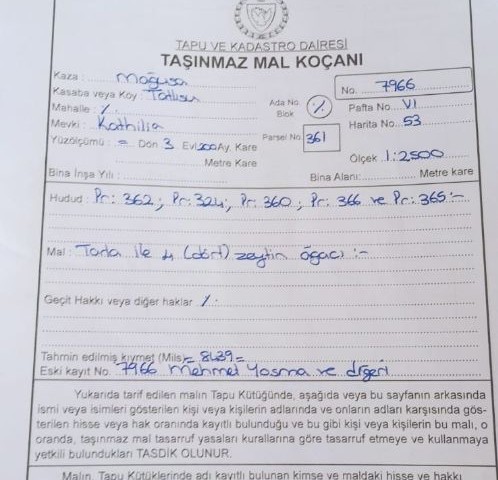 TAPU VE KADASTRO DAİRESİ
TAŞINMAZ MAL KOÇANI
Kaza : Mağusa
Kasaba veya Köy Tatlısu
Mahalle : %
Mevki : Kathilia
Yüzölçümü : = Dön 3 Evl 200 Ay. Kare
Metre Kare
Bina İnşa Yılı :
Ada No. %
Blok
Parsel No. 361
No. 7966
Pafta No. VI
Harita No. 53
Ölçek 1:2500
Bina Alanı: Metre kare
Hudud : Pr: 362; Pr: 324; Pr: 360; Pr: 366 ve Pr: 365 :-
Mal : Tarla ile 4 (dört) zeytin ağacı :-
Geçit Hakkı veya diğer haklar %.
Tahmin edilmiş kıymet (Mils) = 8439 =
Eski kayıt No. 7966 Mehmet Yosma ve diğeri
Yukarıda tarif edilen malın Tapu Kütüğünde, aşağıda veya bu sayfanın arkasında
ismi veya isimleri gösterilen kişi veya kişilerin adlarında ve onların adları karşısında gös-
terilen hisse veya hak oranında kayıtlı bulunduğu ve bu gibi kişi veya kişilerin bu malı, o
oranda, taşınmaz mal tasarruf yasaları kurallarına göre tasarruf etmeye ve kullanmaya
yetkili bulundukları TASDİK OLUNUR.
Malın, Tapu Kütüklerinde adı kayıtlı bulunan kimse ve maldaki hisse ve hakkı